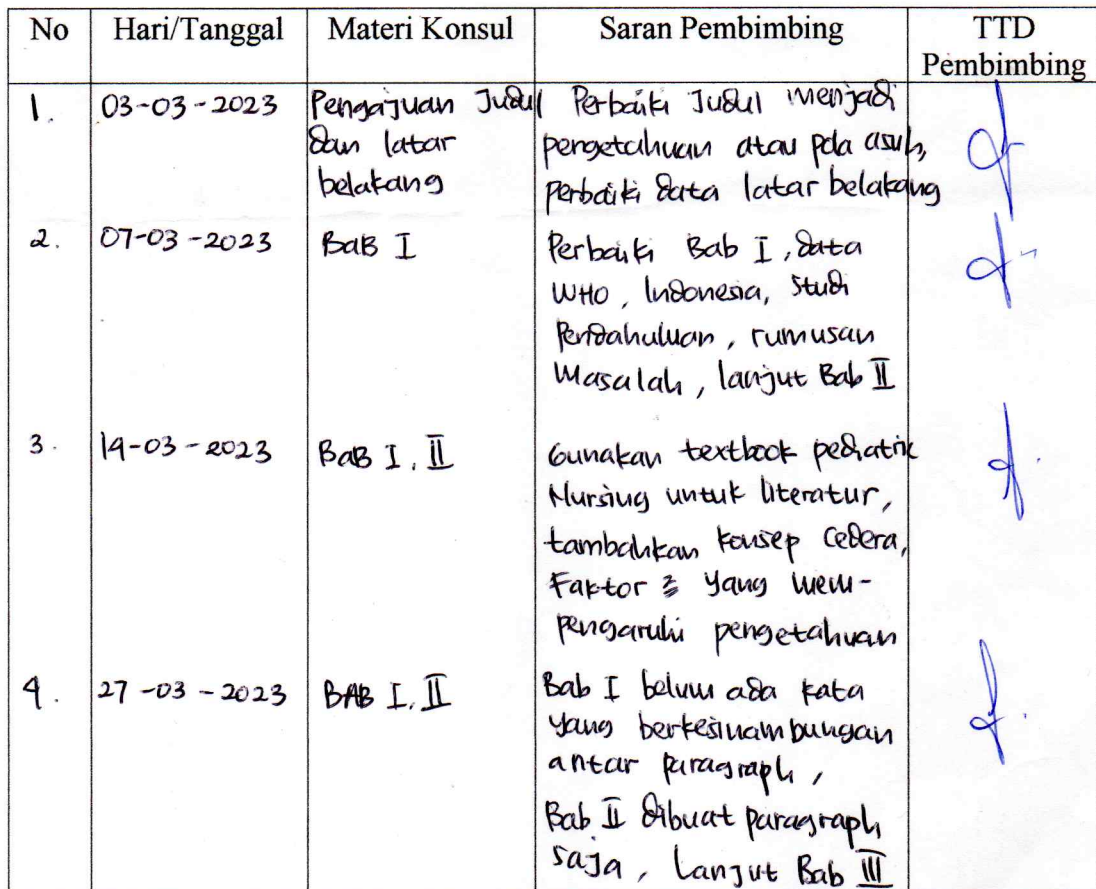 No Hari/Tanggal Materi Konsul Saran Pembimbing TTD
Pembimbing
1. 03-03-2023 Pengajuan Judul Perbaiki Judul menjadi
dan latar pengetahuan atau pola asuh,
belakang perbaiki data latar belakang
2. 07-03-2023 BaB I Perbaiki Bab I, data
WHO, Indonesia, Studi
Pendahuluan, rumusan
Masalah, lanjut Bab II
3. 14-03-2023 BaB I, II Gunakan textbook pediatric
Nursing untuk literatur,
tambahkan konsep cedera,
Faktor 2 yang mem-
pengaruhi pengetahuan
4. 27-03-2023 BAB I, II Bab I belum ada kata
yang berkesinambungan
antar paragraph,
Bab II dibuat paragraph
saja, Lanjut Bab III